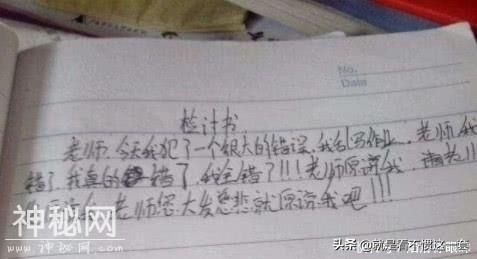 No.
Date
检讨书
老师,今天我犯了一个很大的错误,我乱写作业,老师我
错了,我真的错了,我全错了!!!老师原谅我,请老
老师您大发慈悲就原谅我吧!!!
神秘网
头条@就是看不惯这一套